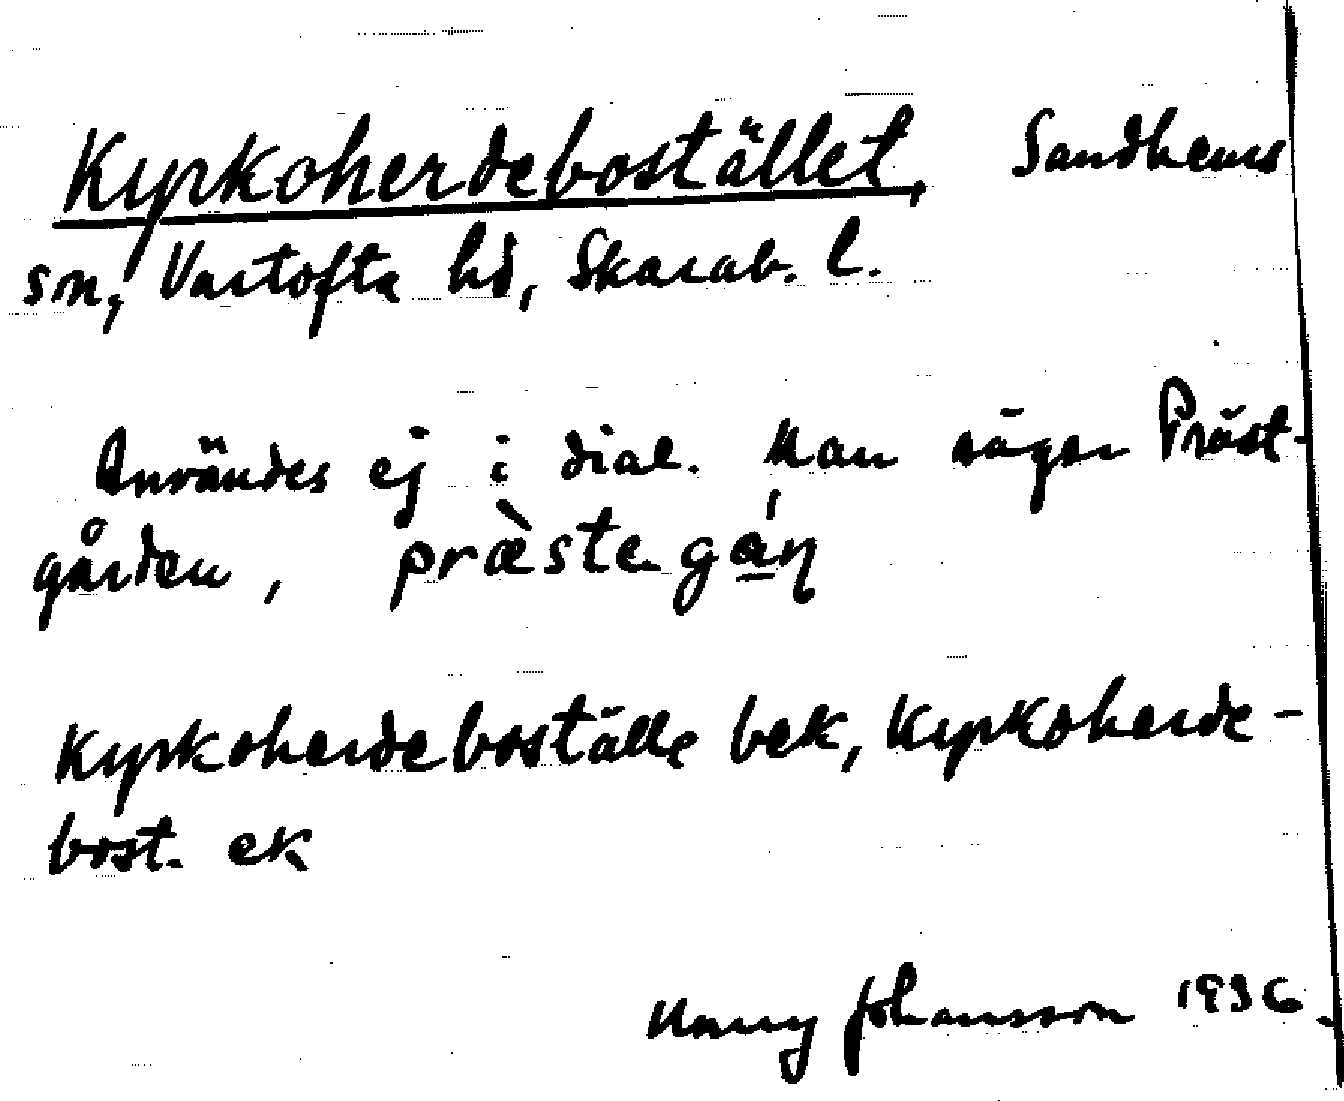 Kyrkoherdebostället, Sandhems
sn, Vartofta hd, Skarab. l.
Användes ej i dial. Man säger Präst-
gården, præ̀stegán
Kyrkoherdeboställe bek, Kyrkoherde-
bost. ek
Johansson 1936.